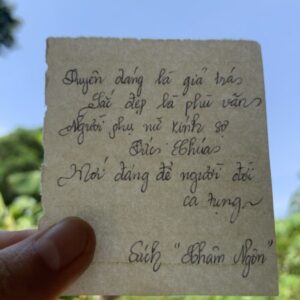 Duyên dáng là giả trá,
Sắc đẹp là phù vân,
Người phụ nữ kính sợ
Đức Chúa,
Mới đáng để người đời
ca tụng.
Sách "Châm Ngôn"